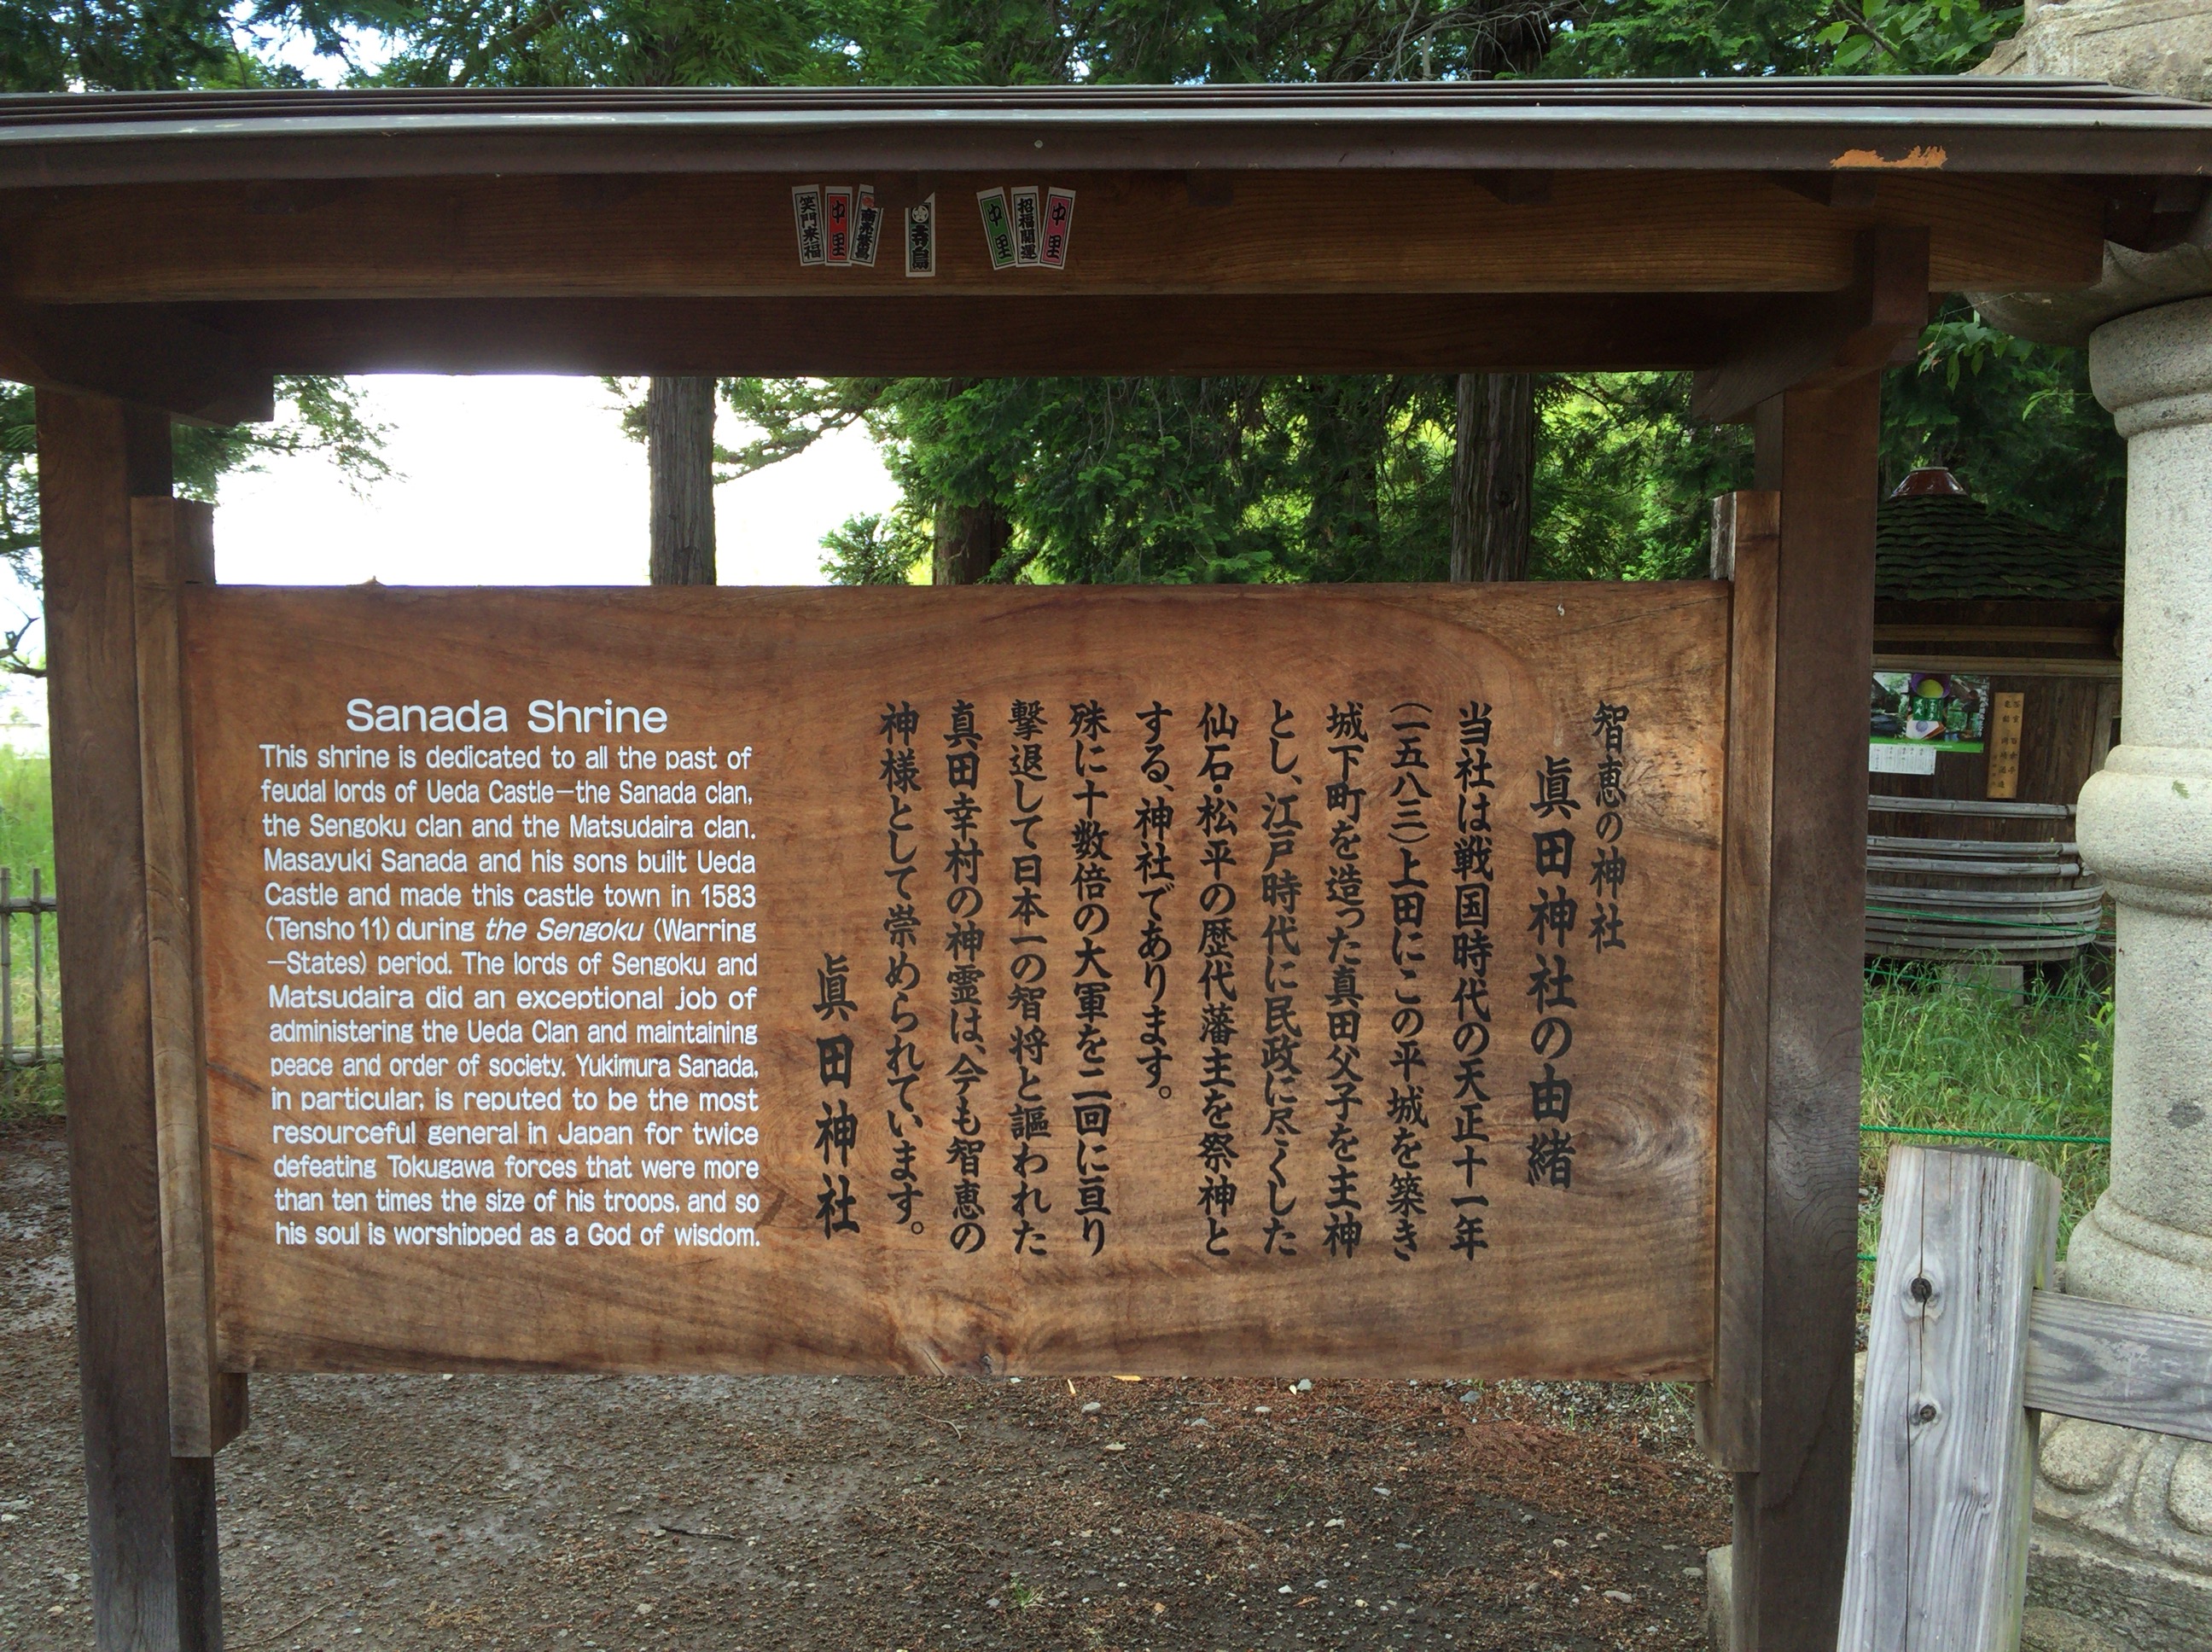 笑門来福
中里
中里
招福開運
中里
Sanada Shrine
This shrine is dedicated to all the past of
feudal lords of Ueda Castle—the Sanada clan,
the Sengoku clan and the Matsudaira clan.
Masayuki Sanada and his sons built Ueda
Castle and made this castle town in 1583
(Tensho 11) during the Sengoku (Warring
—States) period. The lords of Sengoku and
Matsudaira did an exceptional job of
administering the Ueda Clan and maintaining
peace and order of society. Yukimura Sanada,
in particular, is reputed to be the most
resourceful general in Japan for twice
defeating Tokugawa forces that were more
than ten times the size of his troops, and so
his soul is worshipped as a God of wisdom.
智恵の神社
眞田神社の由緒
当社は戦国時代の天正十一年
(一五八三)上田にこの平城を築き
城下町を造った真田父子を主神
とし、江戸時代に民政に尽くした
仙石・松平の歴代藩主を祭神と
する、神社であります。
殊に十数倍の大軍を二回に亘り
撃退して日本一の智将と謳われた
真田幸村の神霊は、今も智恵の
神様として崇められています。
眞田神社